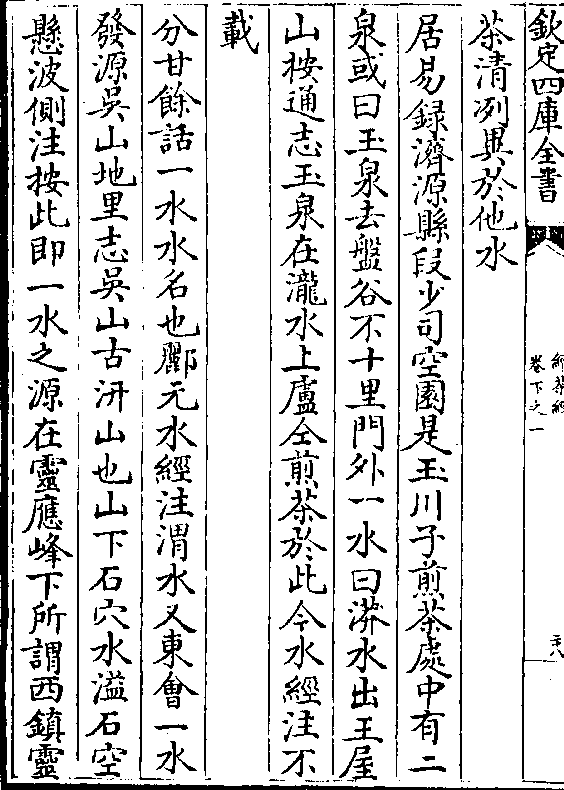 欽定四庫全書
續茶經
卷下之一
茶清冽異於他水
居易録濟源縣段少司空園是玉川子煎茶處中有二
泉或曰玉泉去盤谷不十里門外一水曰漭水出王屋
山按通志玉泉在瀧水上盧仝煎茶於此今水經注不
載
分甘餘話一水水名也酈元水經注渭水又東會一水
發源吳山地里志吳山古汧山也山下石穴水溢石空
懸波側注按此即一水之源在靈應峰下所謂西鎮靈